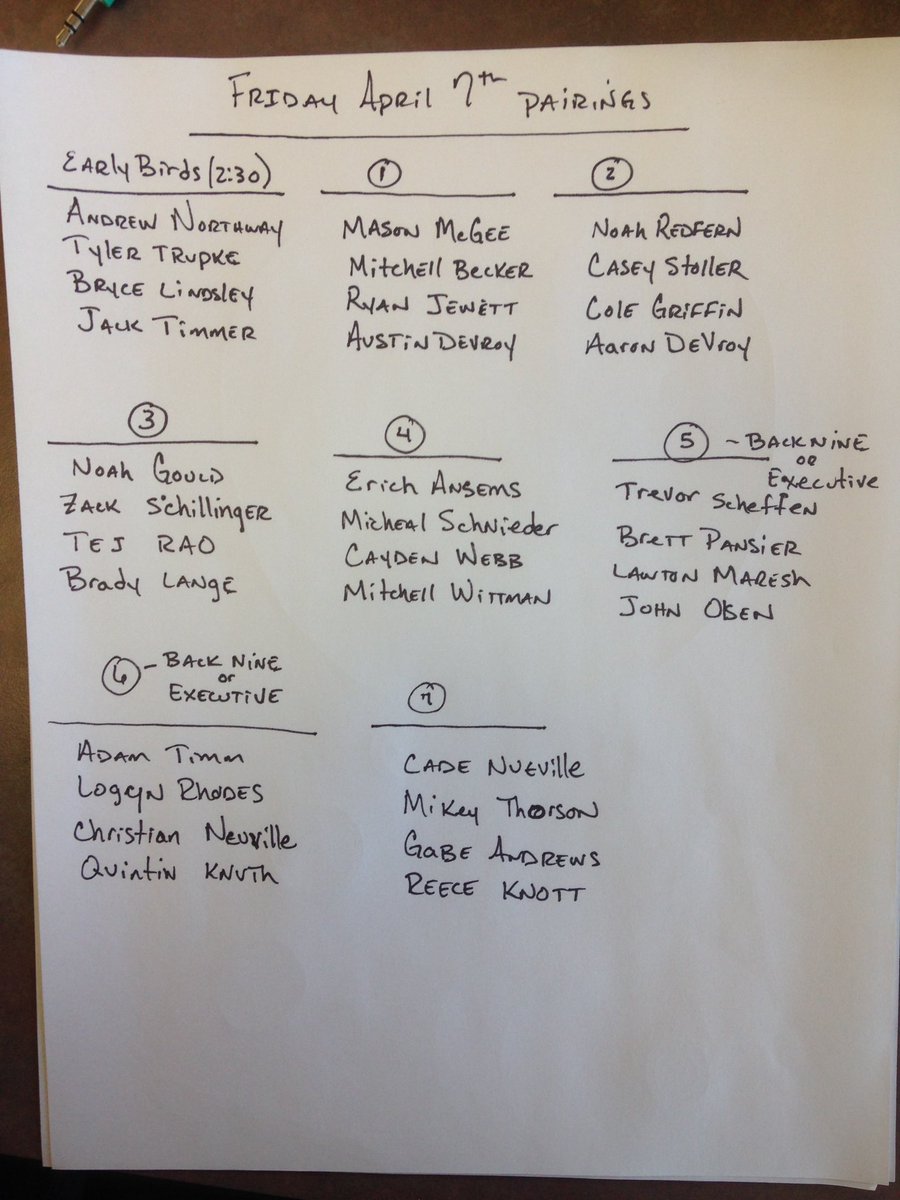 Friday April 7th Pairings
Early Birds (2:30)
Andrew Northway
Tyler Trupke
Bryce Lindsley
Jack Timmer
1
Mason McGee
Mitchell Becker
Ryan Jewett
Austin DeVroy
2
Noah Redfern
Casey Stoller
Cole Griffin
Aaron DeVroy
3
Noah Gould
Zack Schillinger
Tej Rao
Brady Lange
4
Erich Ansems
Micheal Schnieder
Cayden Webb
Mitchell Wittman
5 - Back Nine
or
Executive
Trevor Scheffen
Brett Pansier
Lawton Maresh
John Olsen
6 - Back Nine
or
Executive
Adam Timm
Logan Rhodes
Christian Neuville
Quintin Knuth
7
Cade Nueville
Mikey Thorson
Gabe Andrews
Reece Knott